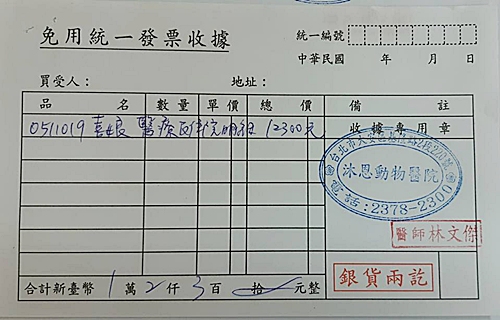 免用統一發票收據
統一編號
中華民國 年 月 日
買受人： 地址：
品名 數量 單價 總價 備註
0511019 喜娘 醫療 12300元
收據專用章
沐恩動物醫院
電話：2378-2300
醫師林文傑
銀貨兩訖
合計新臺幣 1 萬 2 仟 3 百 拾 元整